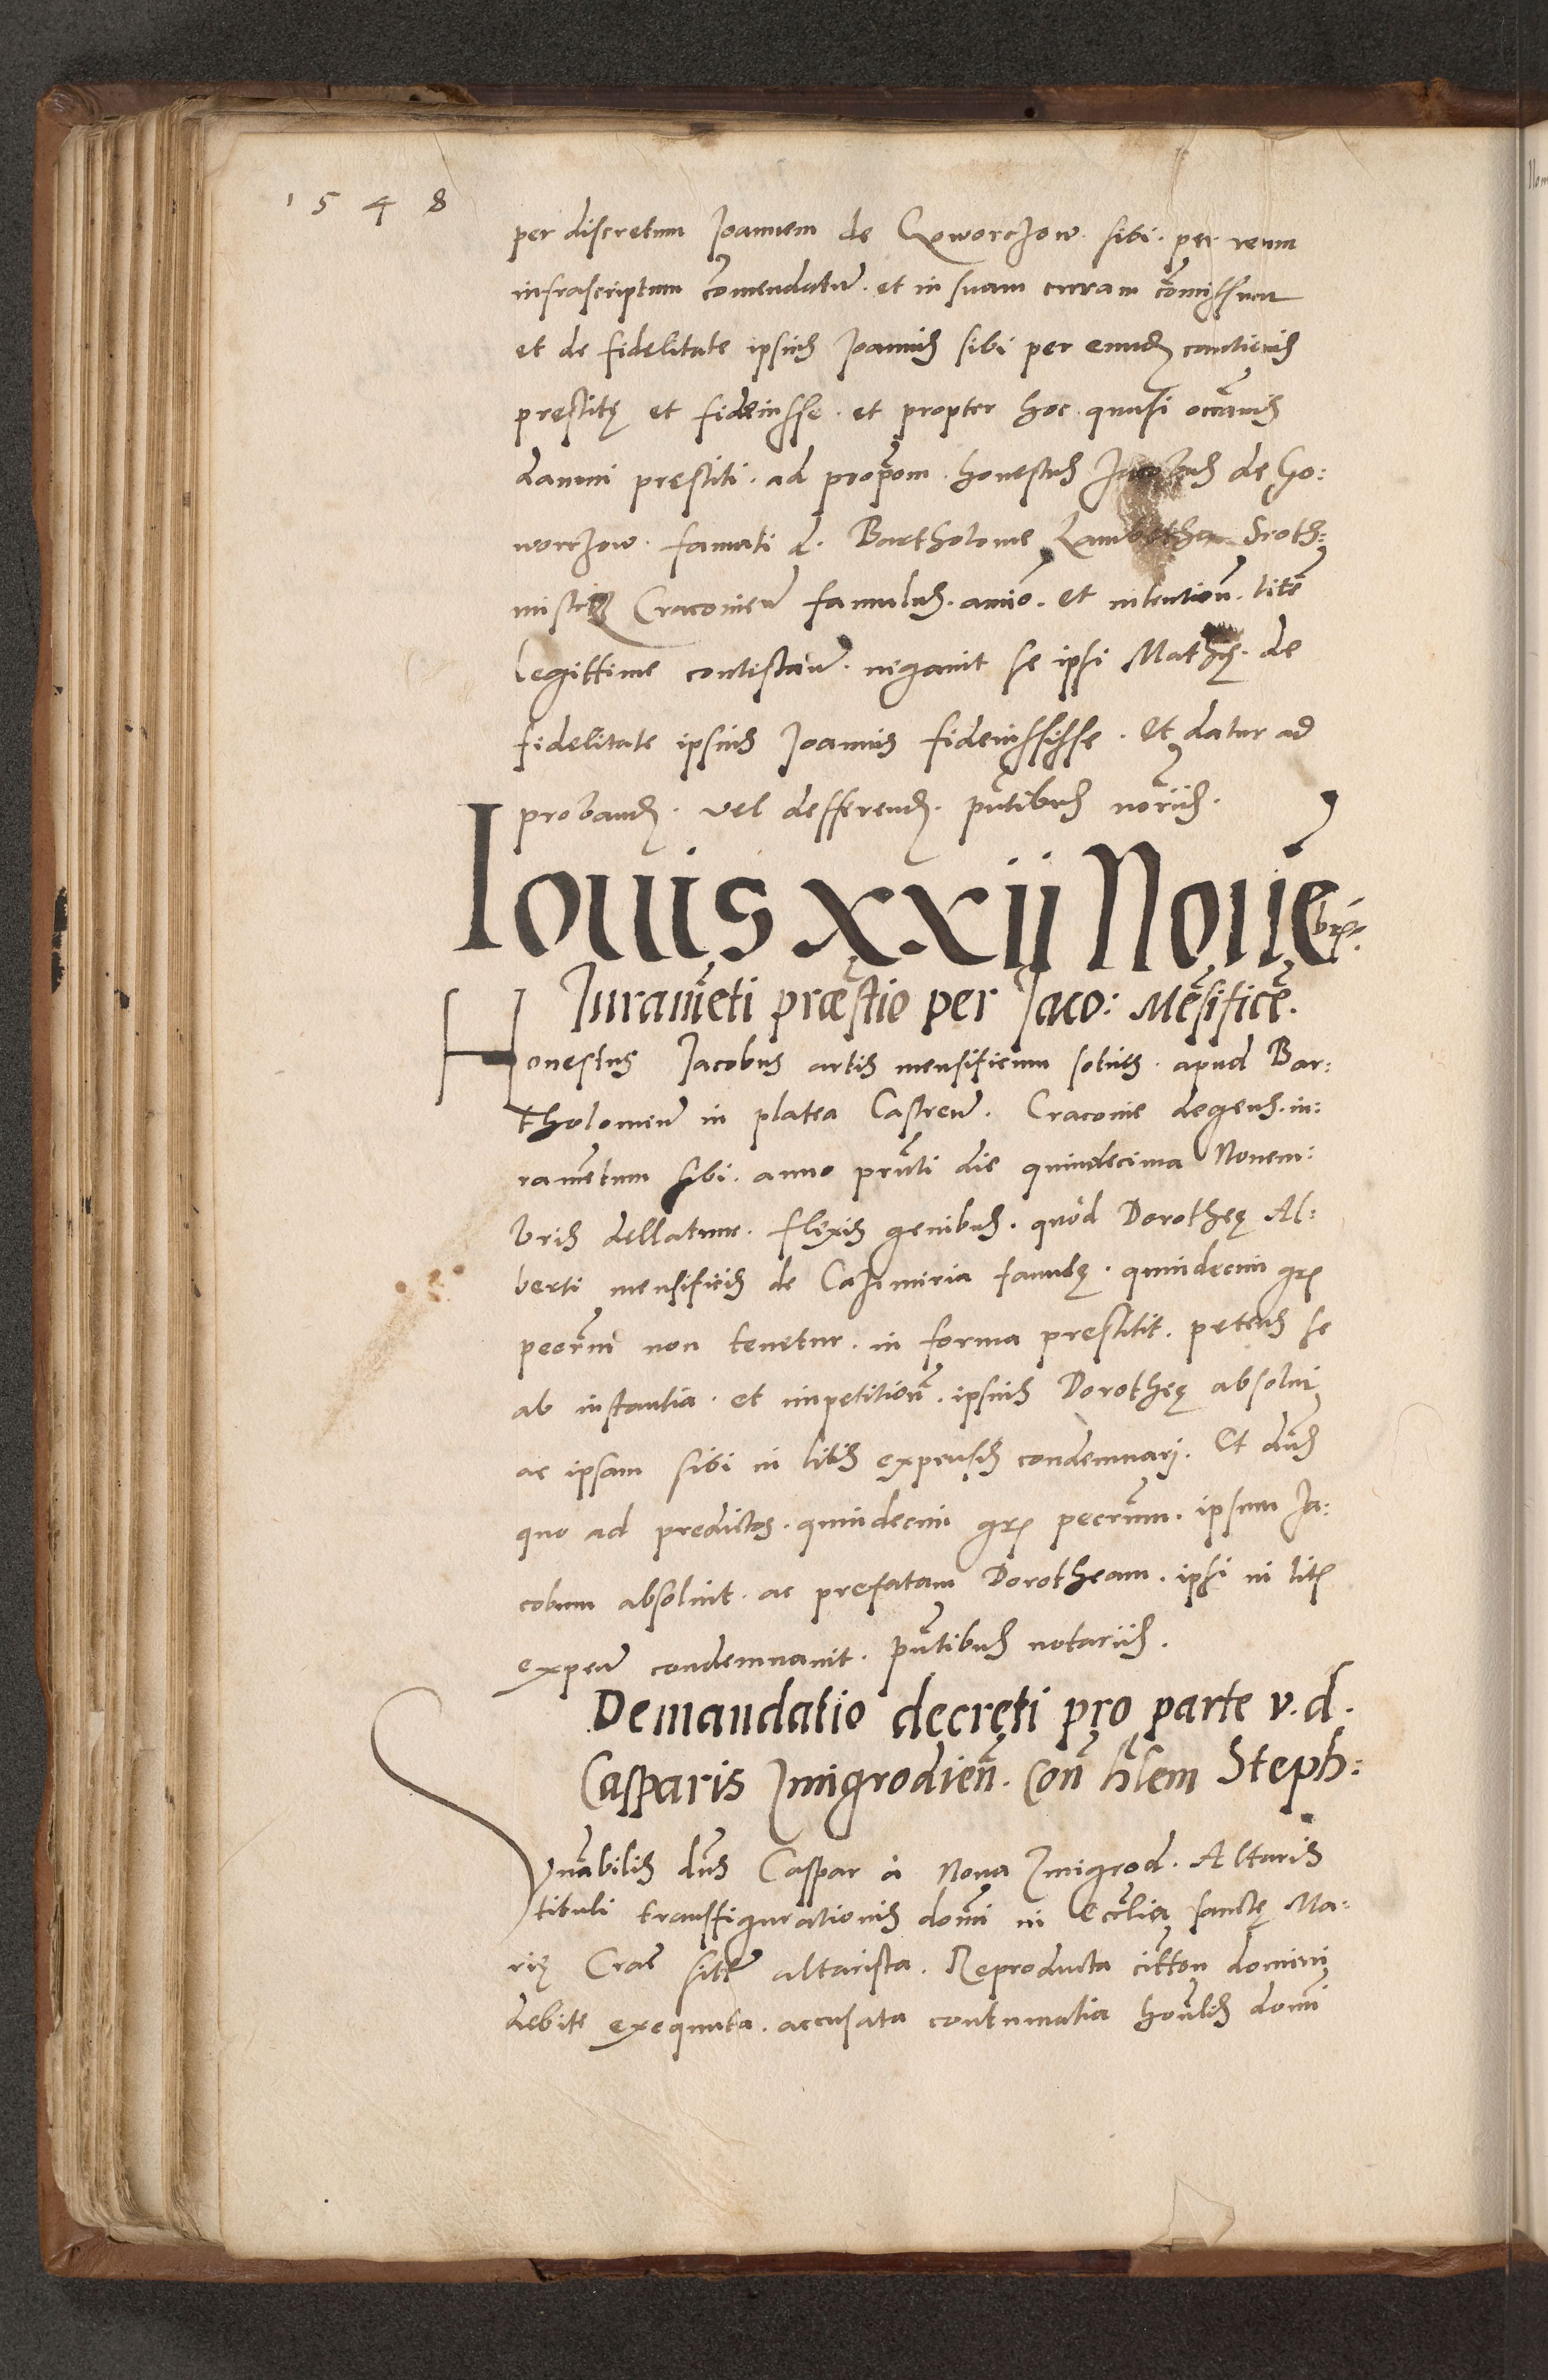 1548
per discretum Joannem de Gowor⁊ow. sibi. per reum
infrascriptum cōmendatū. et in suam curam cōmissum
et de fidelitate ipsius Joannis sibi per eund. cautionis
prestitę et fideiusse. et propter hoc quasi occānis
damni prestiti. ad propōm. honestus Jacobus de Go:
worzow. famati d. Bartholome Lambetha Sroth:
mistrz Cracovieñ famulus. animo. et intentioñ. litē
legittime contestañ. negavit se ipsi Mathię. de
fidelitate ipsius Joannis fideiussisse. Et datur ad
proband. vel defferend. pñtibus noriis.
Iouis xxii Nouēbris.
Iuramēti præstio per Jaco: Mēsificē.
Honestus Jacobus artis mensificum sotius. apud Bar:
tholomeū in platea Castreñ. Cracovie degens. iu:
ramētum sibi. anno prñti die quindecima Novem:
bris dellatum. flexis genibus. quòd Dorotheę Al:
berti mensificis de Cazimiria famulę. quindecim grs
pecūrn non tenetur. in forma prestitit. petens se
ab instantia. et impetitioñ. ipsius Dorotheę absolvi
ac ipsam sibi in litis expensis condemnari. Et dūs
quo ad predictos. quindecim grs pecrum. ipsum Ja:
cobum absolvit. ac prefatam Dorotheam. ipsi in litis
expeñ condemnavit. pñtibus notariis.
Demandatio decreti pro parte v. d.
Casparis Imigrodieñ. Coñ hlem Steph:
Vnabilis dūs Caspar à Nova Imigrod. Altaris
tituli transfigurationis domī in Ecclia sanctę Ma:
rię Crać siteñ altarista. Reproducta cittōn domini
debite exequuta. accusata contumatia hon̄lis domī